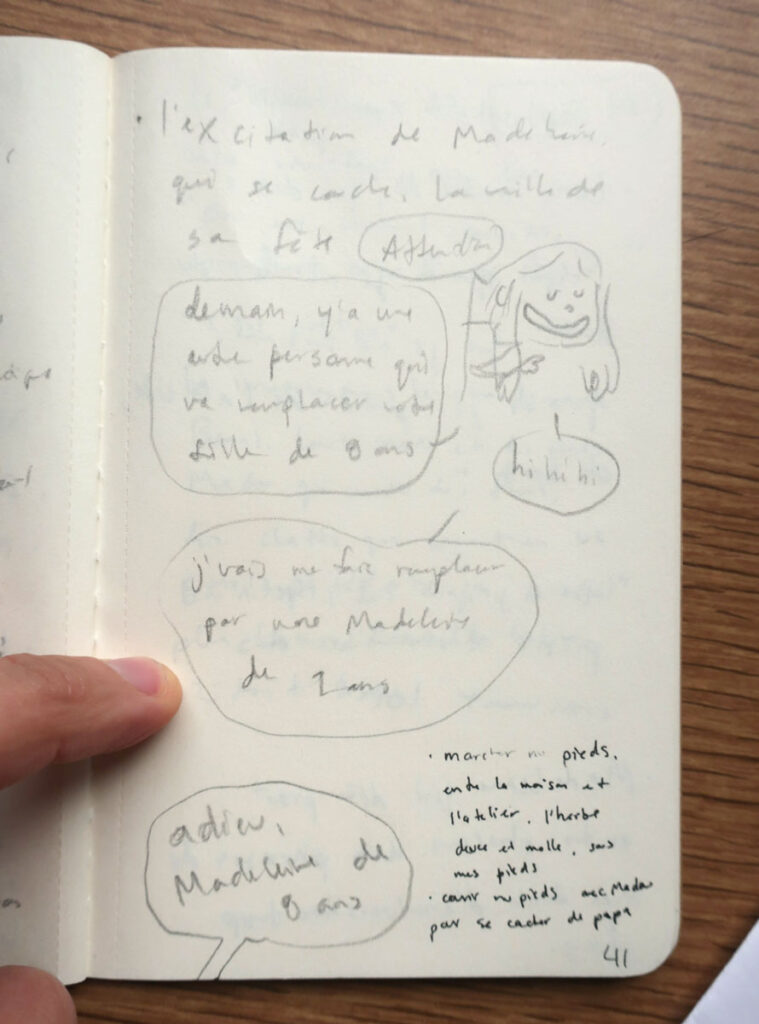 · l'excitation de Madeleine,
qui se cache, la veille de
sa fête
Attendez
demain, y'a une
autre personne qui
va remplacer votre
fille de 8 ans
hi hi hi
j'vais me faire remplacer
par une Madeleine
de ans
adieu,
Madeleine de
8 ans
· marcher nu pieds,
entre la maison et
l'atelier, l'herbe
douce et molle, sous
mes pieds
· courir nu pieds avec Mado
pour se cacher de papa
41